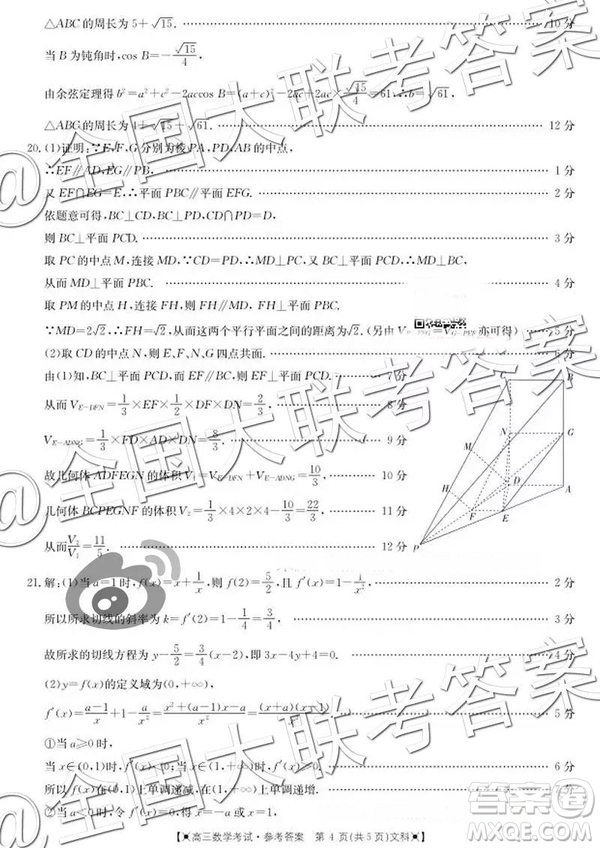 △ABC的周长为5+√15. 10分
当B为钝角时,cos B=-√15/4,
由余弦定理得b²=a²+c²-2accos B=(a+c)²-2ac+2ac×√15/4=61,∴b=√61,
△ABC的周长为4+√15+√61. 12分
20.(1)证明:∵E,F,G分别为棱PA,PD,AB的中点,
∴EF∥AD,EG∥PB. 1分
又EF∩EG=E,∴平面PBC∥平面EFG. 2分
依题意可得,BC⊥CD,BC⊥PD,CD∩PD=D,
则BC⊥平面PCD. 3分
取PC的中点M,连接MD,∵CD=PD,∴MD⊥PC,又BC⊥平面PCD,∴MD⊥BC,
从而MD⊥平面PBC. 4分
取PM的中点H,连接FH,则FH⊥平面PBC.
∵MD=2√2,∴FH=√2,从而这两个平行平面之间的距离为√2.(另由 亦可得) 5分
(2)取CD的中点N,则E,F,N,G四点共面. 6分
由(1)知,BC⊥平面PCD,EF∥AD∥BC,则EF⊥平面PCD. 7分
从而V_{E-DFN}=1/3×EF×1/2×DF×DN=2/3, 8分
V_{E-ADNG}=1/3×FD×AD×DN=8/3. 9分
故几何体ADFEGN的体积V₁=V_{E-DFN}+V_{E-ADNG}=10/3, 10分
几何体BCPEGNF的体积V₂=1/3×4×2×4-10/3=22/3, 11分
从而V₂/V₁=11/5. 12分
C
B
N
G
M
H
D
A
F
E
P
21.解:(1)当a=1时,f(x)=x+1/x,则f(2)=5/2,且f′(x)=1-1/x², 2分
所以所求切线的斜率为k=f′(2)=1-1/4=3/4, 3分
故所求的切线方程为y-5/2=3/4(x-2),即3x-4y+4=0. 4分
(2)y=f(x)的定义域为(0,+∞),
f′(x)=(a-1)/x+1-a/x²=(x²+(a-1)x-a)/x²=(x+a)(x-1)/x². 5分
①当a≥0时,
当x∈(0,1)时,f′(x)<0;当x∈(1,+∞)时,f′(x)>0. 6分
所以f(x)在(0,1)上单调递减,在(1,+∞)上单调递增.
②当a<0时,令f′(x)=0,得x=-a或x=1,
【高三数学考试·参考答案 第4页(共5页)文科】
@全国大联考答案
@全国大联考答案
@全国大联考答案